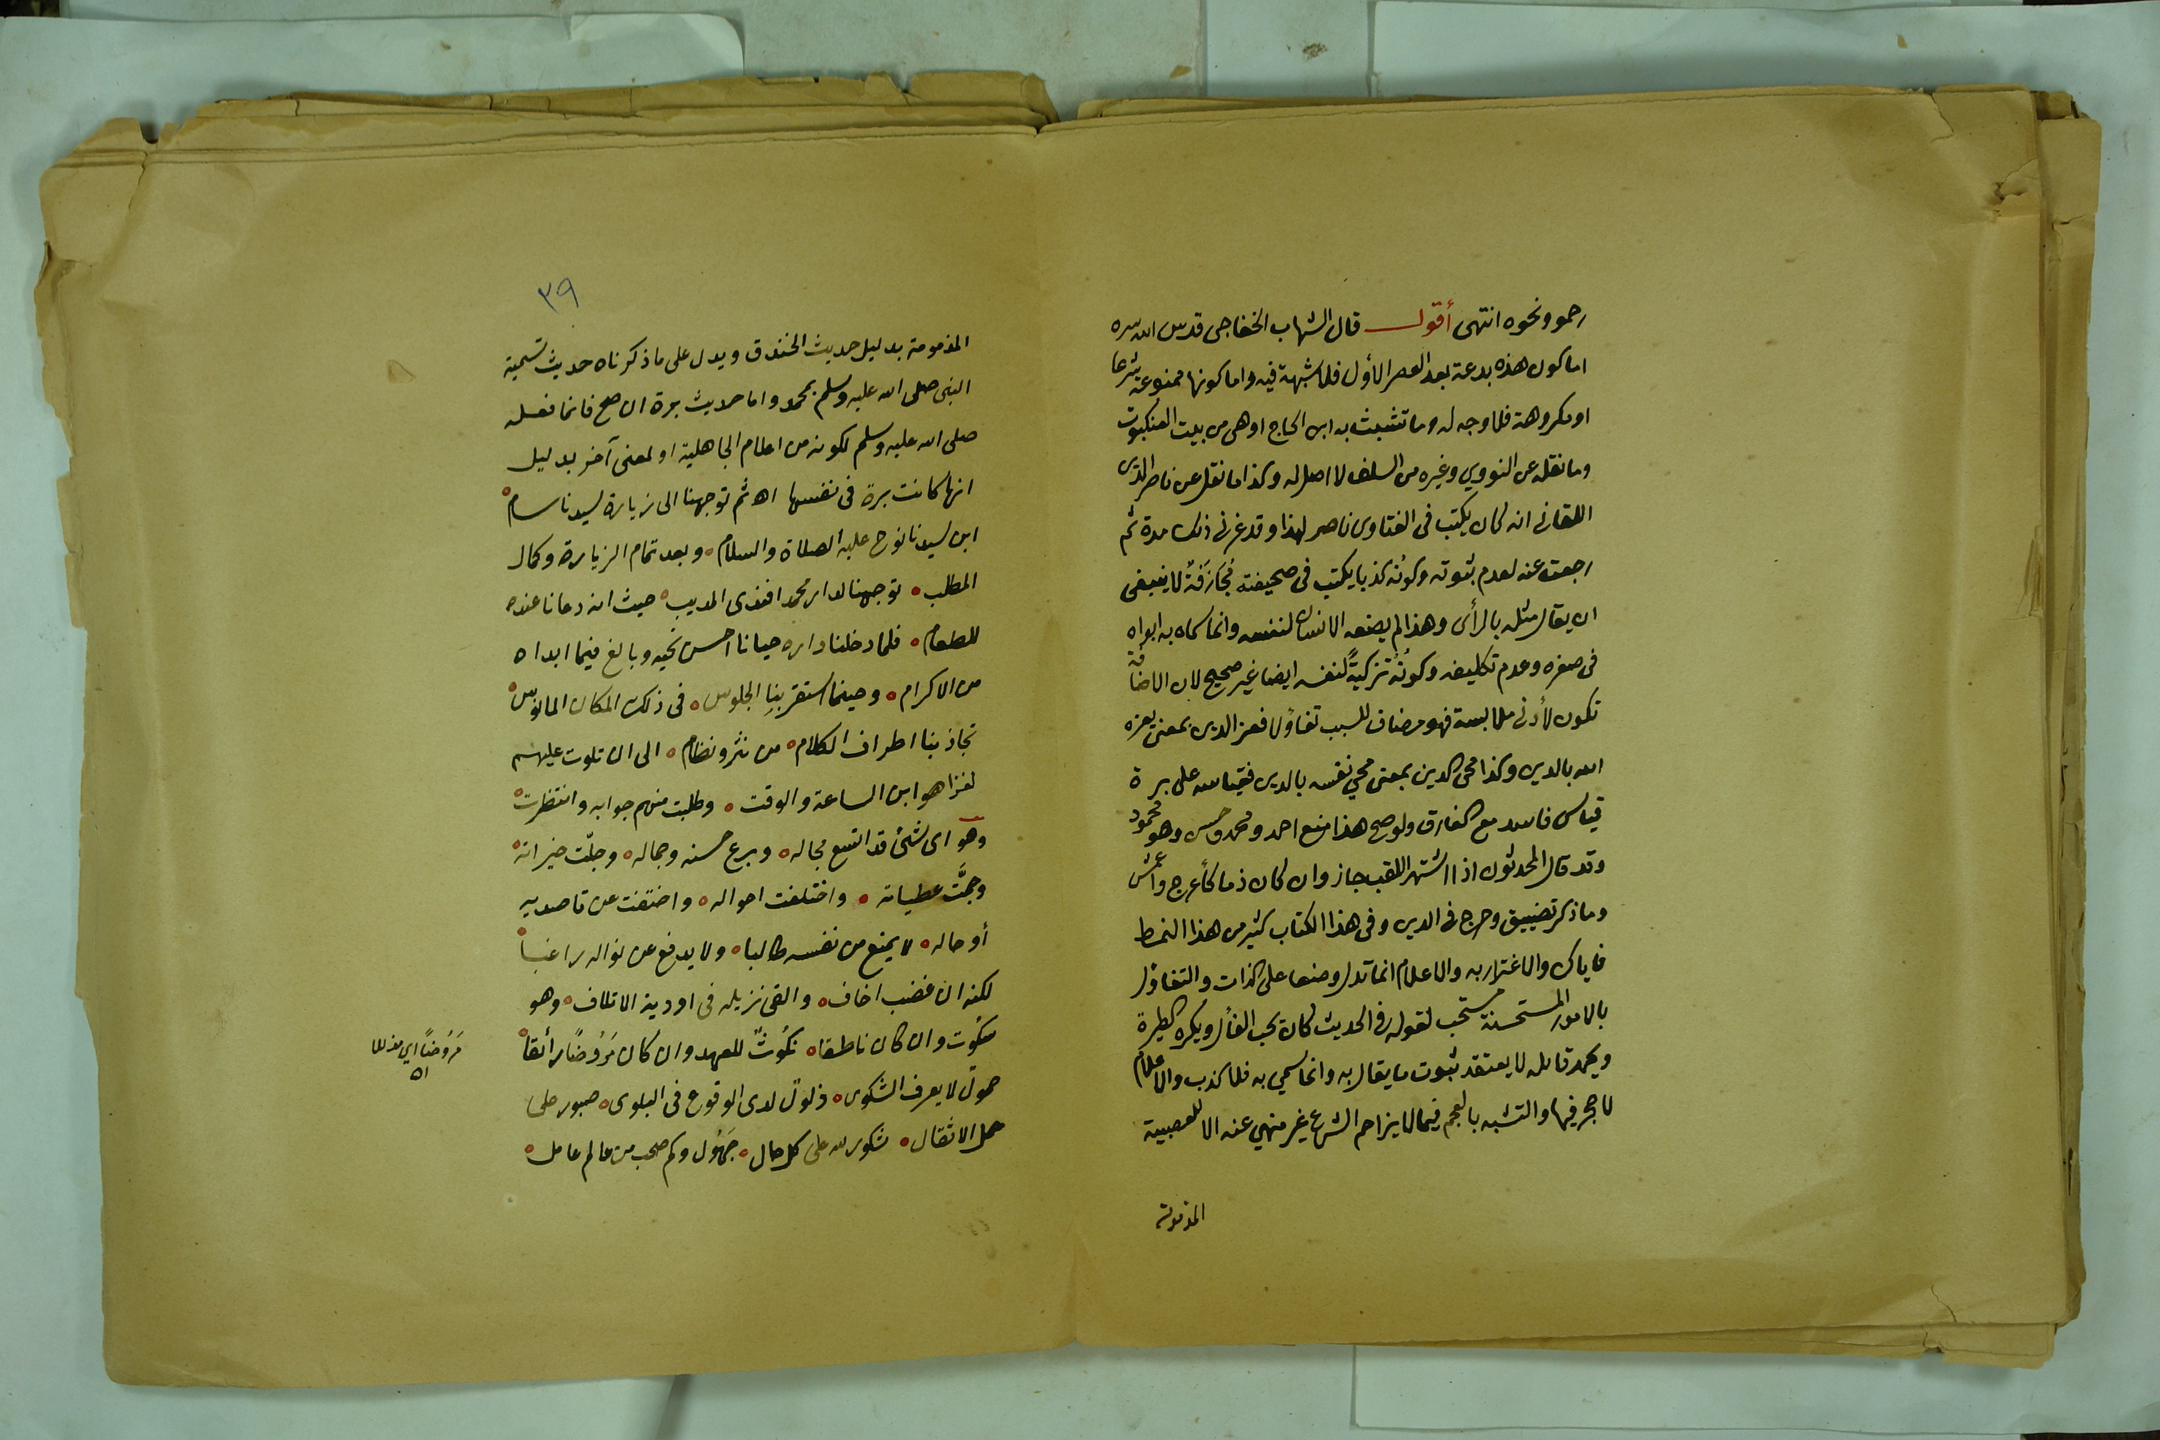 رحمو ونحوه انتهى أقول قال الشهاب الخفاجى قدس الله سره
اما كون هذه بدعة بعد العصر الأول فلا شبهة فيه واما كونها ممنوعة شرعا
او مكروهة فلا وجه له وما تشبث به ابن الحاج اوهى من بيت العنكبوت
وما نقله عن النووي وغيره من السلف لا اصل له وكذا ما نقل عن ناصر الدين
اللقانى انه كان يكتب فى الفتاوى ناصر لهذا وقد غرنى ذلك مدة ثم
رجعت عنه لعدم ثبوته وكونُه كذبا يكتب فى صحيفته مُجَازَفَةٌ لا ينبغى
ان يقال مثله بالرأى وهذا لم يضعه الانسان لنفسه وانما سماه به ابواه
فى صغره وعدم تكليفه وكونُهُ تزكيةً لنفسه ايضا غير صحيح لان الاضافة
تكون لأدنى ملابسة فهو مضاف للسبب تفاؤلا فعز الدين بمعنى يعزه
الله بالدين وكذا محى الدين بمعنى محي نفسه بالدين فقياسه على برة
قياس فاسد مع الفارق ولو صح هذا منع احمد ومحمد وحسن وهو محمود
وقد قال المحدثون اذا اشتهر اللقب جاز وان كان ذما كأعرج واعمش
وما ذكر تضييق وحرج فى الدين وفى هذا الكتاب كثير من هذا النمط
فاياك والاغترار به والاعلام انما تدل وضعا على الذات والتفاؤل
بالامور المستحسنة مستحب لقوله فى الحديث كان يحب الفأل ويكره الطيرة
ويحمد قائله لا يعتقد ثبوت ما يقال به وانما سمي به فلا كذب والاعلام
لا حجر فيها والتشبه بالعجم فيما لا يزاحم الشرع غير منهي عنه الا للعصبية
المذمومة
٣٩
المذمومة بدليل حديث الخندق ويدل على ما ذكرناه حديث تسمية
النبى صلى الله عليه وسلم بمحمد واما حديث برة ان صح فانما فعله
صلى الله عليه وسلم لكونه من اعلام الجاهلية او لمعنى آخر بدليل
انها كانت برة فى نفسها اه ثم توجهنا الى زيارة سيدنا سام
ابن سيدنا نوح عليه الصلاة والسلام وبعد تمام الزيارة وكمال
المطلب توجهنا لدار محمد افندى المديب حيث انه دعانا عنده
للطعام فلما دخلنا داره حيانا احسن تحيه وبالغ فيما ابداه
من الاكرام وحينما استقر بنا الجلوس فى ذلك المكان المانوس
تجاذبنا اطراف الكلام من نثر ونظام الى ان تلوت عليهم
لغزا هو ابن الساعة والوقت وطلبت منهم جوابه وانتظرت
وهو اى شئ قد اتسع مجاله وبرع حسنه وجماله وجلّت خيراته
وجمَّت عطياته واختلفت احواله واختفت عن قاصديه
أوحاله لا يمنع من نفسه طالبا ولا يدفع عن نواله راغبا
لكنه ان غضب اخاف والقى نزيله فى اودية الاتلاف وهو
سكوُت وان كان ناطقا نكُوثٌ للعهد وان كان مَرُوضًا رائقا
حمولٌ لا يعرف الشكوى ذلولٌ لدى الوقوع فى البلوى صبور على
حمل الاثقال شكور لله على كل حال جَهُول وكم صحب من عالم عامل
مَرُوضًا اي مذللا
اه